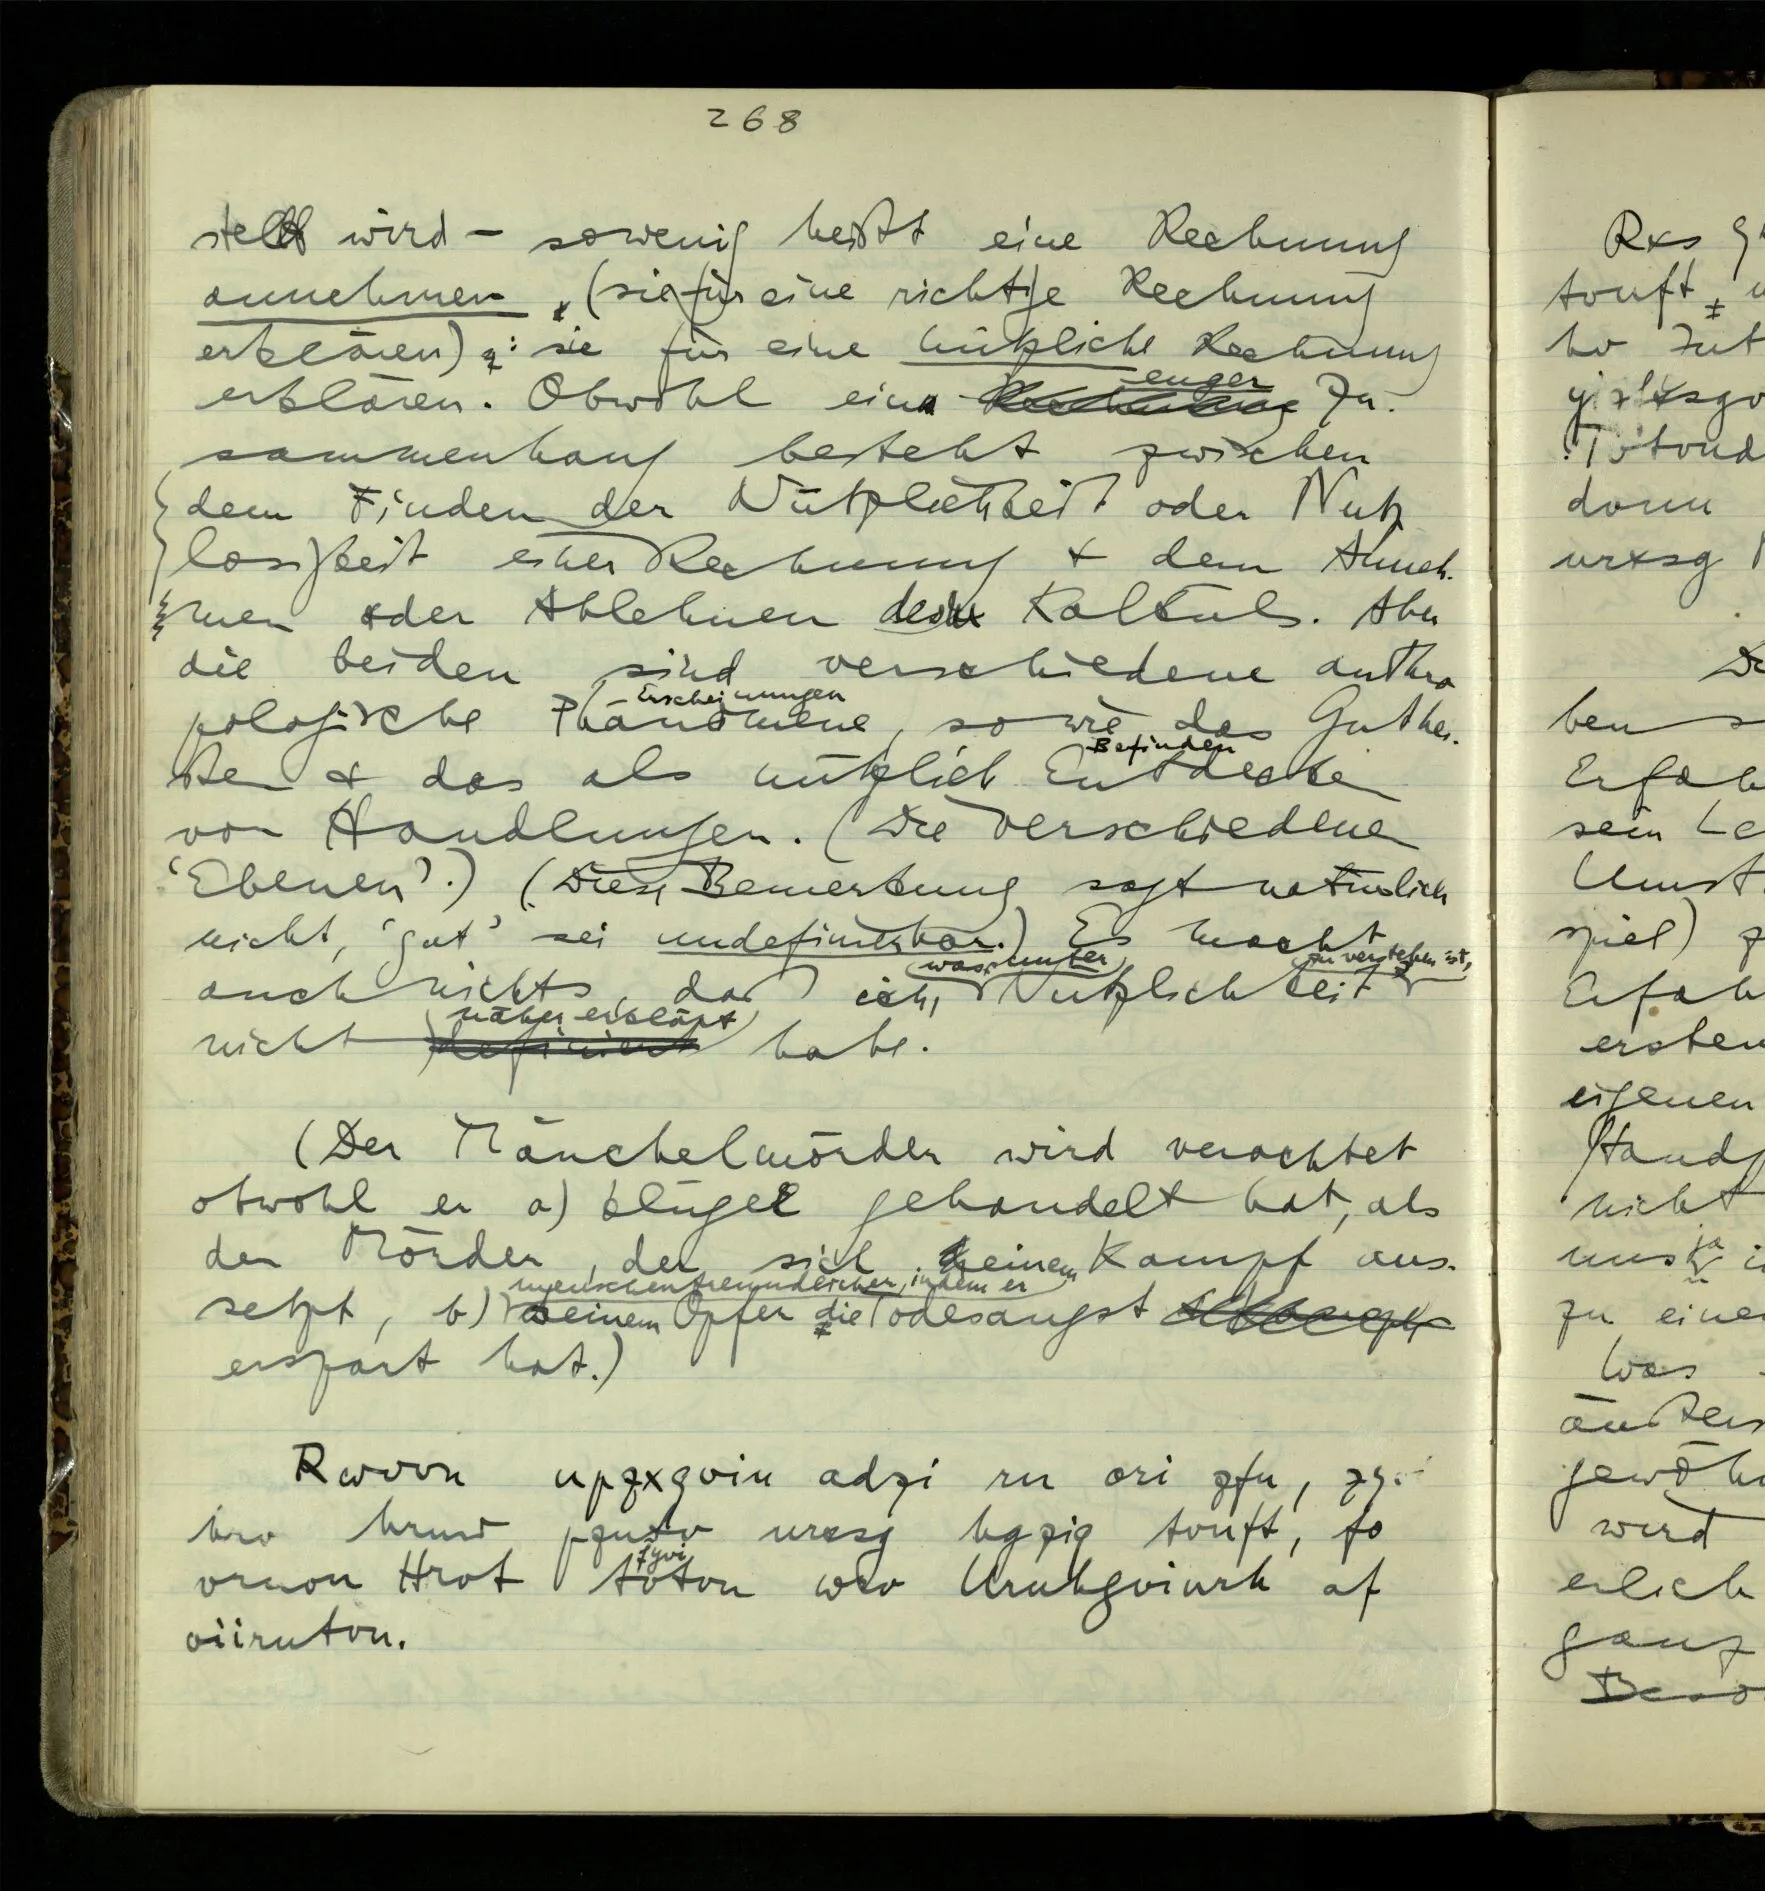 268
stellt wird – sowenig heißt eine Rechnung
annehmen, (sie für eine richtige Rechnung
erklären): sie für eine nützliche Rechnung
erklären. Obwohl ein enger Zu-
sammenhang besteht zwischen
dem Finden der Nützlichkeit oder Nutz
losigkeit einer Rechnung & dem Anneh-
men oder Ablehnen des Kalküls. Aber
die beiden sind verschiedene anthro
Erscheinungen
pologische Phänomene, so wie das Guthei-
Befinden
ßen & das als nützlich Entdecken
von Handlungen. (Die verschiedene
‘Ebenen’.) (Diese Bemerkung sagt natürlich
nicht, ‘gut’ sei undefinierbar.) Es macht
was unter zu verstehen ist,
auch nichts, daß ich, Nützlichkeit
näher erklärt
nicht definiert habe.
(Der Mäuchelmörder wird verachtet
obwohl er a) klüger gehandelt hat, als
der Mörder, der sich einem Kampf aus-
menschenfreundlicher, indem er
setzt, b) seinem Opfer die Todesangst
erspart hat.)
Rwvvn upzxgviu adzi rn ori zfn,
hrv hrnw pznxv urxsg hgzig tvuft, fo
zgvi
vrnvn Hrot tvtvn wrv Urnhgvinrh af
viirntvn.
Rxs
tvuft
hv
dvnn
urxsg
ben
Erfah
sein Le
Umst
spiel)
Erfah
ersten
eigenen
Hand
nicht
ja
uns
zu einer
Was
äußers
gewöh
wird
erlich
ganz